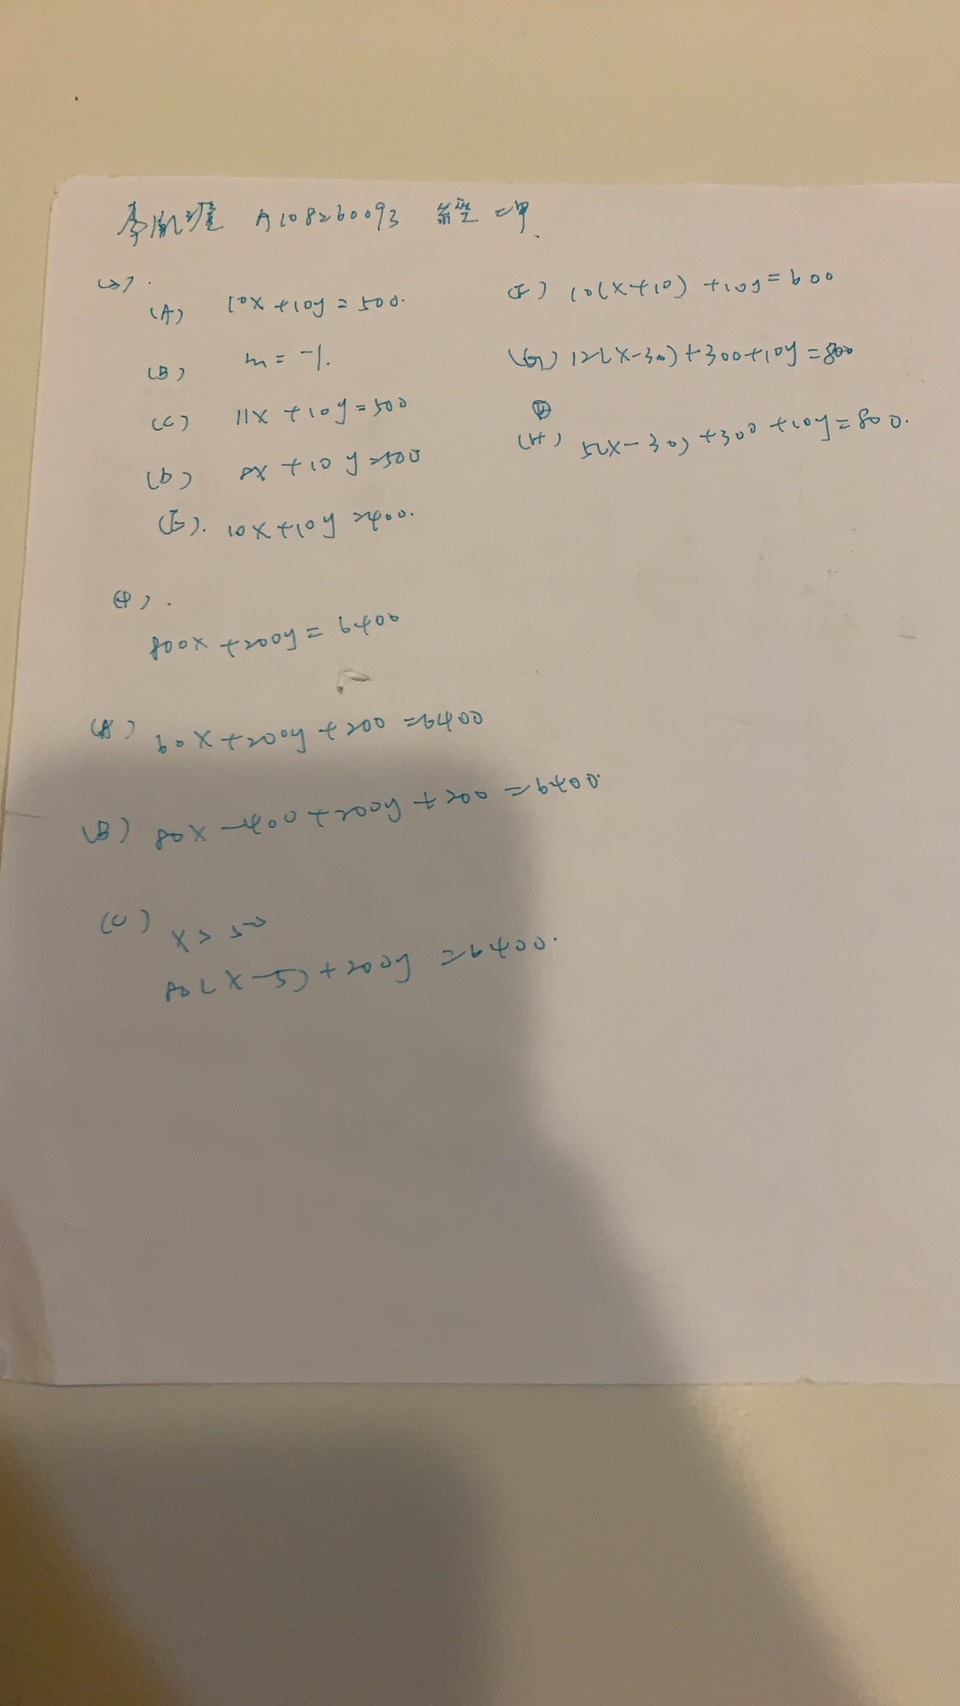 李 A108260093 經 二甲
(A) 10x+10y=500.
(B) m=-1.
(C) 11x+10y=500
(D) 8x+10y=500
(E). 10x+10y=400.
(F) 10(x+10)+10y=600
(G) 12(x-30)+300+10y=800
(H) 5(x-30)+300+10y=800.
800x+200y=6400
(A) 60x+200y+200=6400
(B) 80x-400+200y+200=6400.
(C) x>50
80(x-5)+200y=6400.